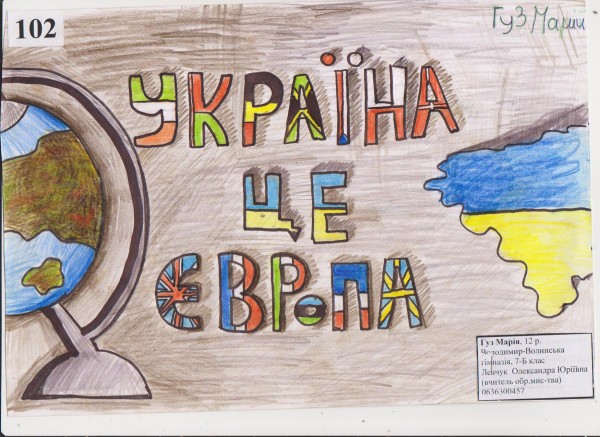 102
Гуз
УКРАЇНА
ЦЕ
ЄВРОПА
Гуз Марія, 12 р.
Володимир-Волинська
гімназія, 7-Б клас
Левчук Олександра Юріївна
(вчитель обр.мис-тва)
0636300457